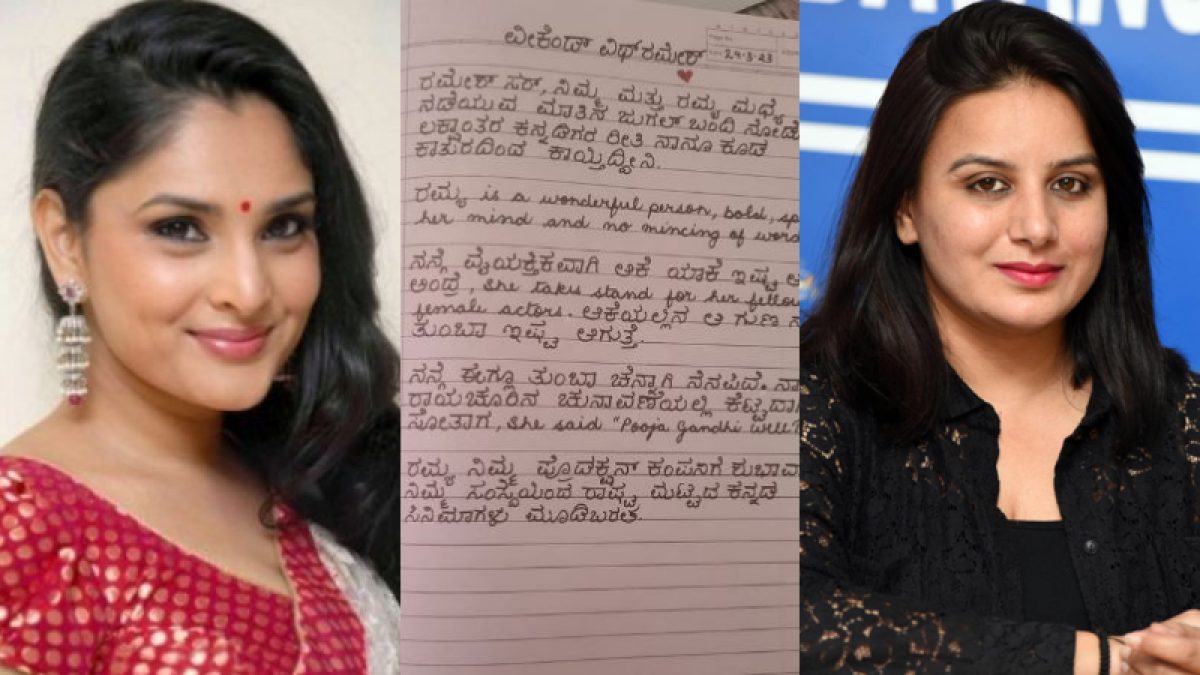 ವೀಕೆಂಡ್ ವಿಥ್ ರಮೇಶ್
24-3-23
ರಮೇಶ್ ಸರ್, ನಿಮ್ಮ ಮತ್ತು ರಮ್ಯ ಮಧ್ಯೆ
ನಡೆಯುವ ಮಾತಿನ ಜುಗಲ್ ಬಂದಿ ನೋಡೋ
ಲಕ್ಷಾಂತರ ಕನ್ನಡಿಗರ ರೀತಿ ನಾನೂ ಕೂಡ
ಕಾತುರದಿಂದ ಕಾಯ್ತಿದ್ದೀನಿ.
ರಮ್ಯ is a wonderful person, bold, sp
her mind and no mincing of word
ನನ್ಗೆ ವೈಯಕ್ತಿಕವಾಗಿ ಆಕೆ ಯಾಕೆ ಇಷ್ಟ ಅ
ಅಂದ್ರೆ, she takes stand for her fellow
female actors. ಆಕೆಯಲ್ಲಿನ ಆ ಗುಣ ನ
ತುಂಬಾ ಇಷ್ಟ ಆಗುತ್ತೆ.
ನನ್ಗೆ ಈಗ್ಲೂ ತುಂಬಾ ಚೆನ್ನಾಗಿ ನೆನಪಿದೆ. ನಾ
ರಾಯಚೂರಿನ ಚುನಾವಣೆಯಲ್ಲಿ ಕೆಟ್ಟದಾಗಿ
ಸೋತಾಗ, she said "Pooja Gandhi will
ರಮ್ಯ ನಿಮ್ಮ ಪ್ರೊಡಕ್ಷನ್ ಕಂಪನಿಗೆ ಶುಭಾವಾ
ನಿಮ್ಮ ಸಂಸ್ಥೆಯಿಂದ ರಾಷ್ಟ್ರ ಮಟ್ಟದ ಕನ್ನಡ
ಸಿನಿಮಾಗಳು ಮೂಡಿಬರಲಿ.